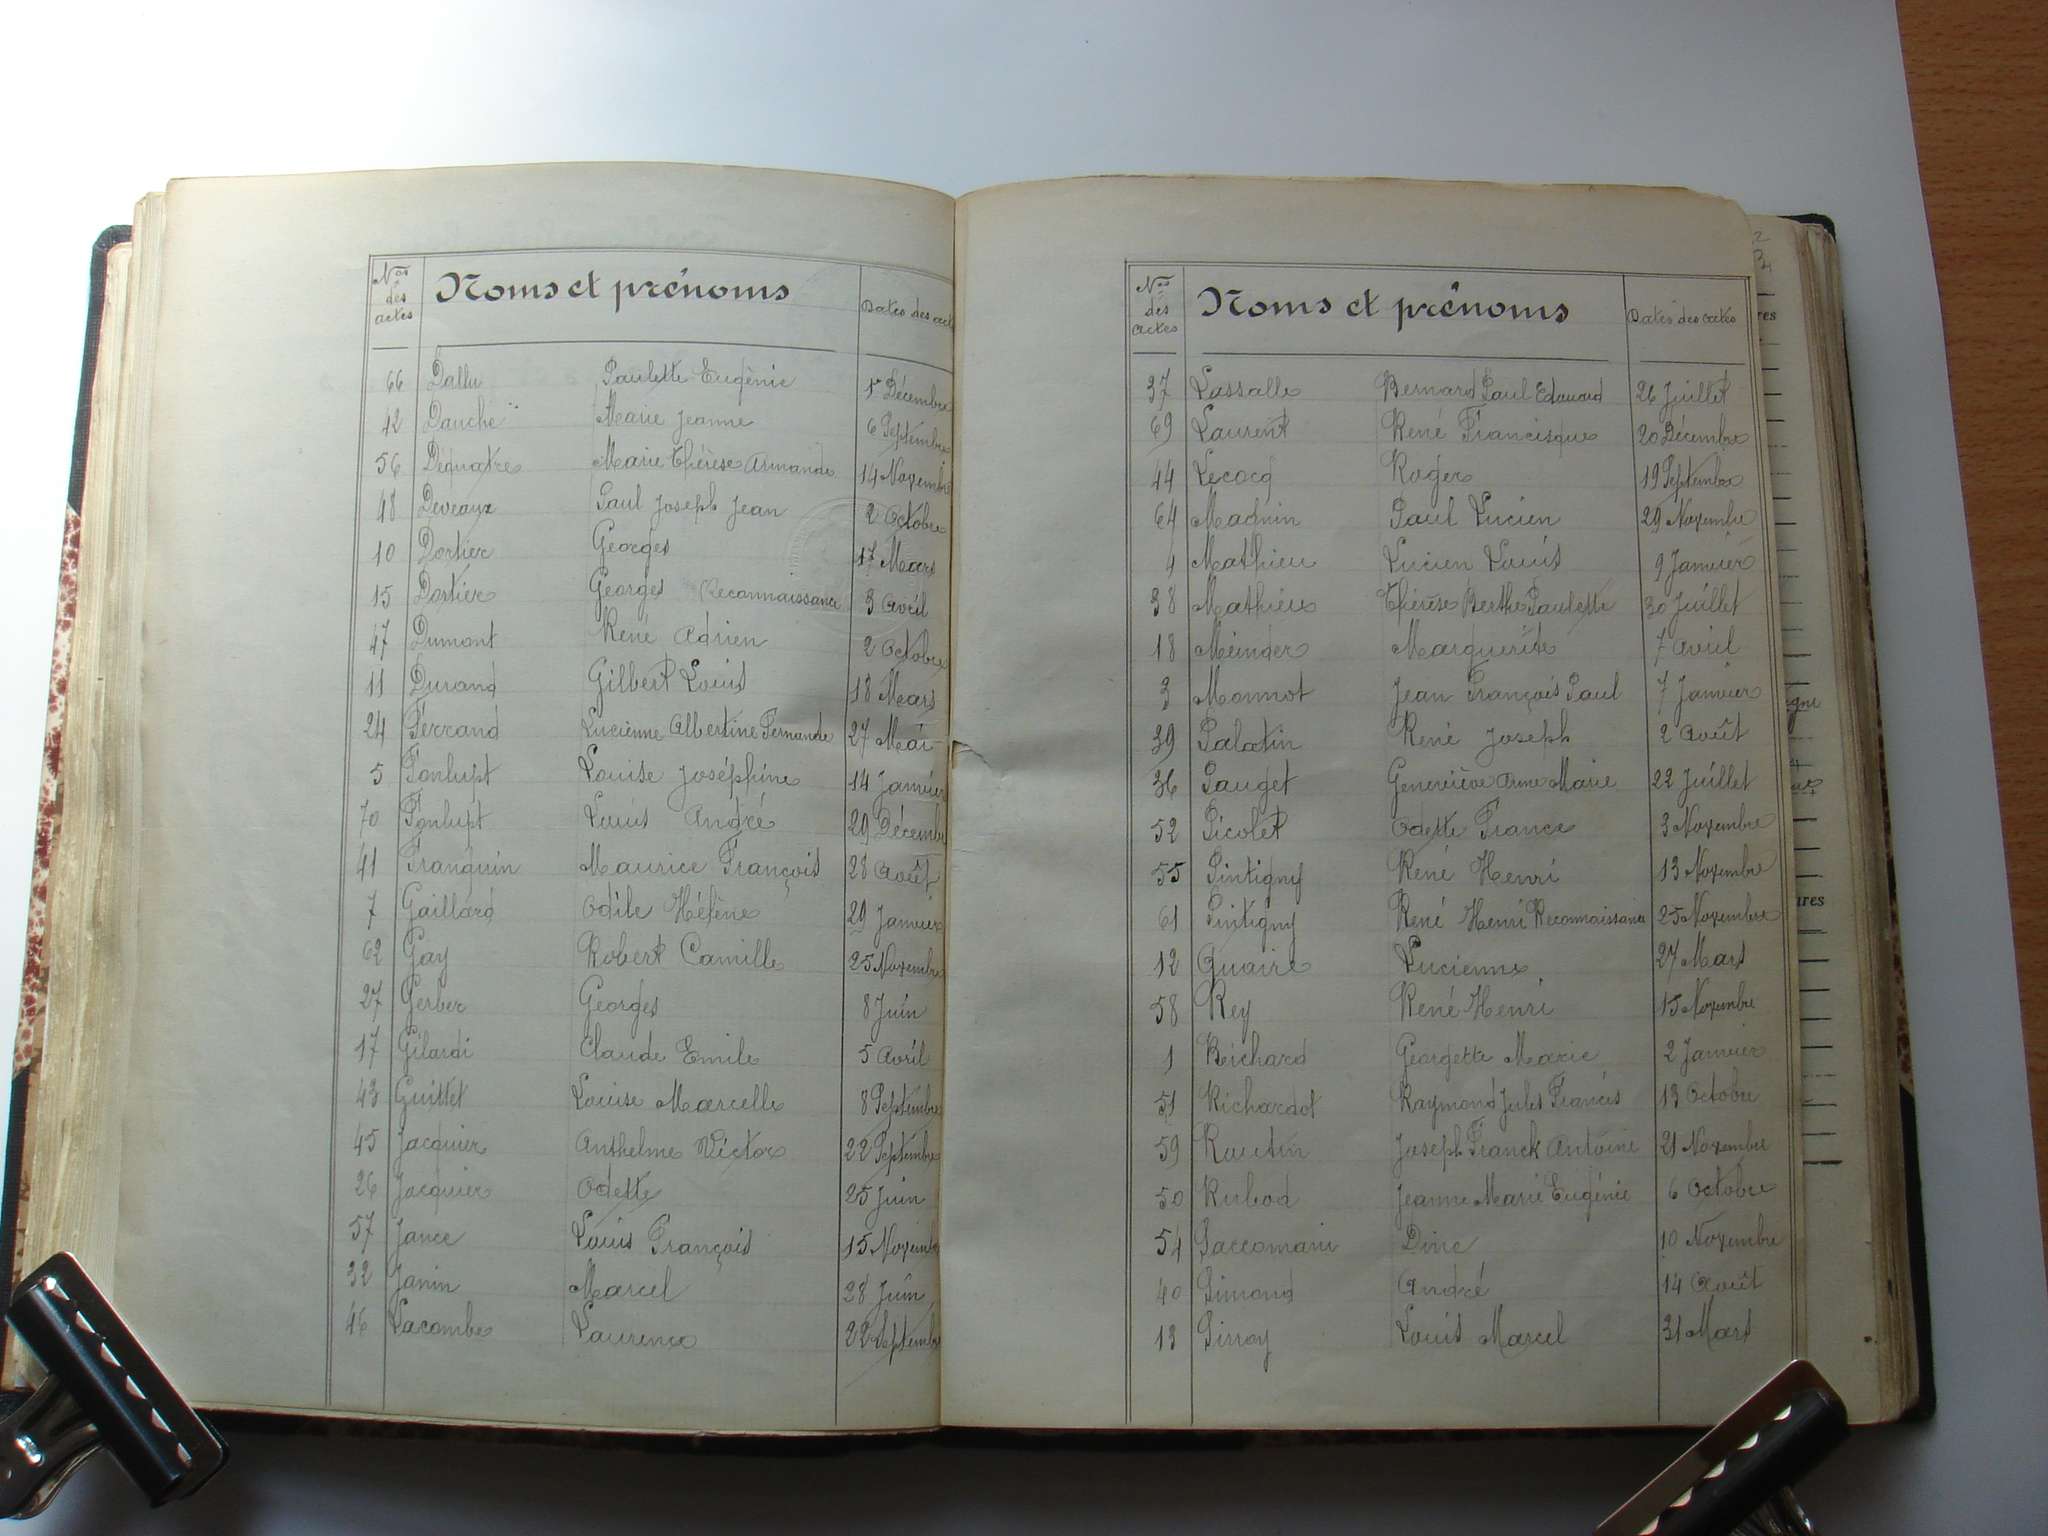 Nos des actes Noms et prénoms Dates des actes
66 Dallu Paulette Eugénie 1er Décembre
42 Dauché Marie Jeanne 6 Septembre
56 Dequatre Marie Thérèse Armande 14 Novembre
48 Deveaux Paul Joseph Jean 2 Octobre
10 Dortier Georges 17 Mars
15 Dortier Georges Reconnaissance 3 Avril
47 Dumont René Adrien 2 Octobre
11 Durand Gilbert Louis 18 Mars
24 Ferrand Lucienne Albertine Fernande 27 Mai
5 Fonlupt Louise Joséphine 14 Janvier
70 Fonlupt Louis André 29 Décembre
41 Franquin Maurice François 28 Août
7 Gaillard Odile Hélène 29 Janvier
62 Gay Robert Camille 25 Novembre
27 Gerber Georges 8 Juin
17 Gilardi Claude Emile 5 Avril
43 Guittet Louise Marcelle 8 Septembre
45 Jacquier Anthelme Victor 22 Septembre
26 Jacquier Odette 25 Juin
57 Jance Louis François 15 Novembre
32 Janin Marcel 28 Juin
46 Lacombe Laurence 22 Septembre
Nos des actes Noms et prénoms Dates des actes
37 Lassalle Bernard Paul Edouard 26 Juillet
69 Laurent René Francisque 20 Décembre
44 Lecocq Roger 19 Septembre
64 Maduin Paul Lucien 29 Novembre
4 Mathieu Lucien Louis 9 Janvier
38 Mathieu Thérèse Berthe Paulette 30 Juillet
18 Meinder Marguerite 7 Avril
3 Monnot Jean François Paul 7 Janvier
39 Palatin René Joseph 2 Août
36 Pauget Geneviève Anne Marie 22 Juillet
52 Picolet Odette France 3 Novembre
55 Pintigny René Henri 13 Novembre
61 Pintigny René Henri Reconnaissance 25 Novembre
12 Quaire Lucienne 27 Mars
58 Rey René Henri 15 Novembre
1 Richard Georgette Marie 2 Janvier
51 Richardot Raymond Jules Francis 13 Octobre
59 Routin Joseph Franck Antoine 21 Novembre
50 Rubod Jeanne Marie Eugénie 6 Octobre
54 Saccomani Dino 10 Novembre
40 Simond André 14 Août
13 Sinoy Louis Marcel 31 Mars